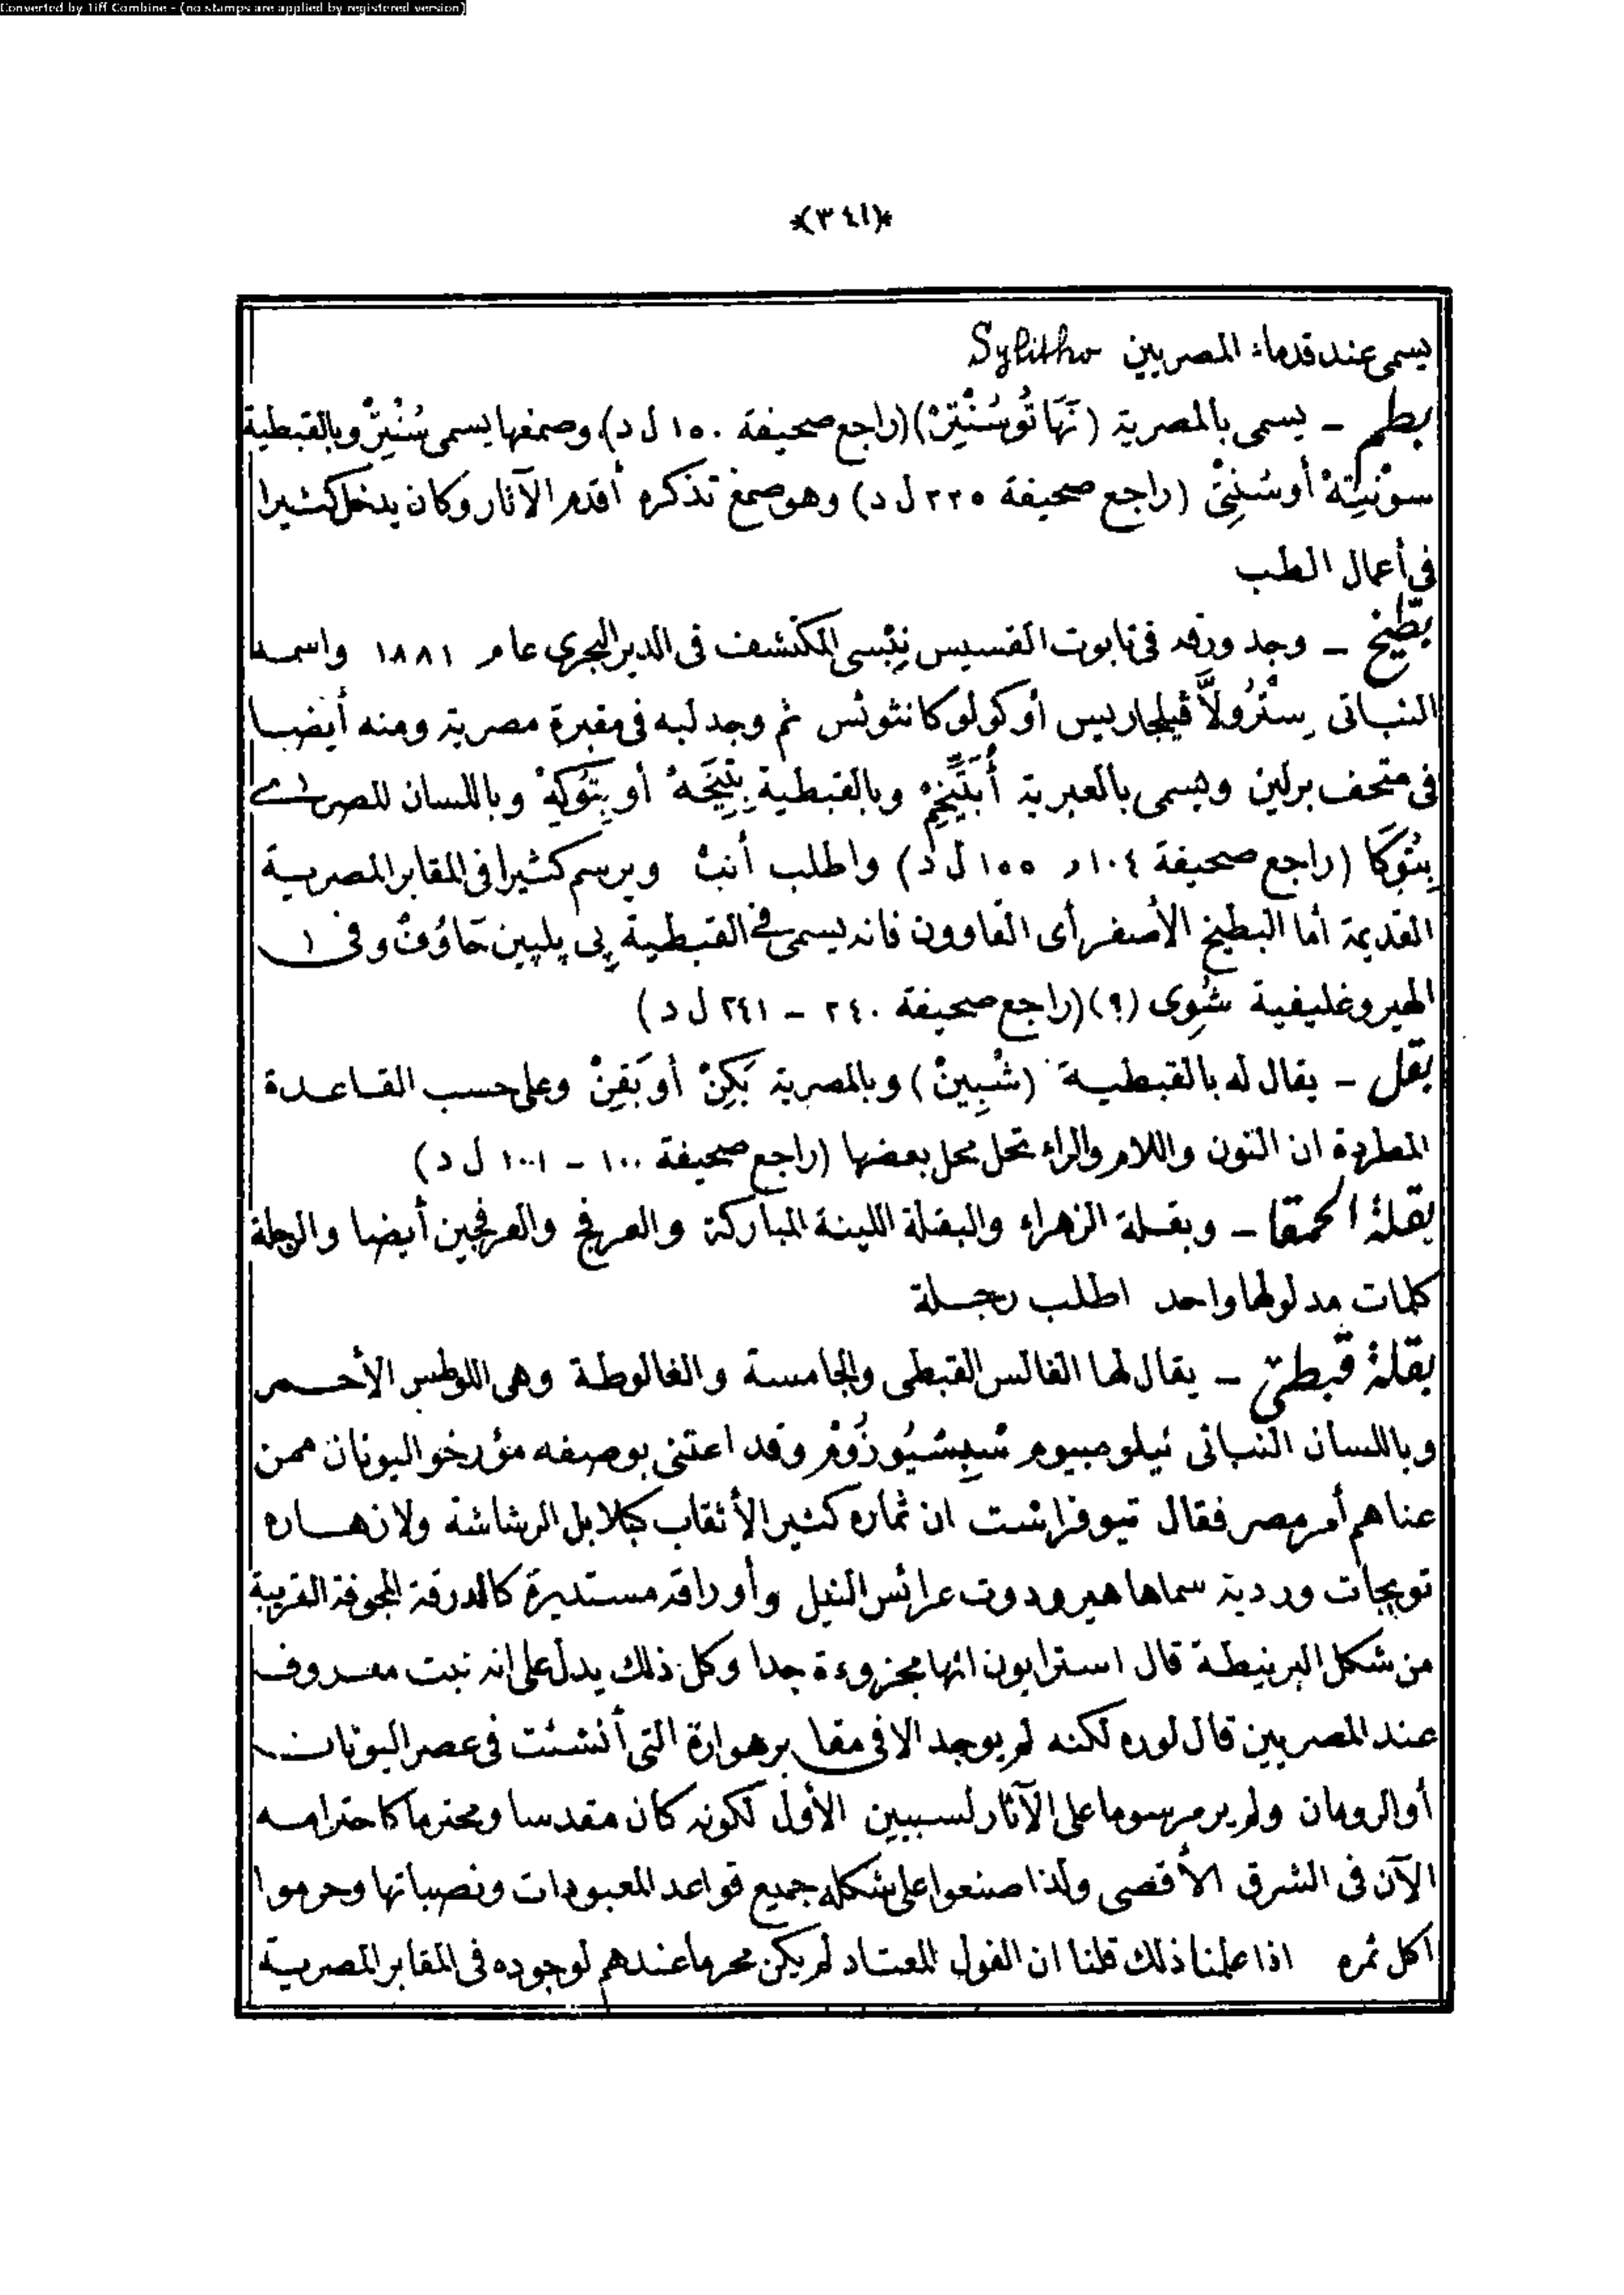 Converted by Tiff Combine - (no stamps are applied by registered version)
*(٣٤١)*
يسمى عند قدماء المصريين Sylitho
بطم – يسمى بالمصرية (نَهَاتُوسُنْتِرْ) (راجع صحيفة ١٥٠ ل د) وصمغها يسمى سُنْتِرْ وبالقبطية
سونْتِهْ أوسُنتِىْ (راجع صحيفة ٢٢٥ ل د) وهو صمغ تذكره أقدم الآثار وكان يدخل كثيرا
فى أعمال الطب
بطّيخ – وجد ورقه فى تابوت القسيس نِبْسى المكتشف فى الدير البحرى عام ١٨٨١ واسمه
النباتى سِتْرُولاَّ ڤيلجاريس أو كولوكانثوئس ثم وجد لبه فى مقبرة مصرية ومنه أيضا
فى متحف برلين ويسمى بالعبرية أَبَتِّيخِيمْ وبالقبطية بِتِيخَهْ أو بِتُوكَهْ وباللسان المصرى
بِتُوكَا (راجع صحيفة ١٠٤ و ١٥٥ ل د) واطلب أنبْ ويرسم كثيرا فى المقابر المصرية
القديمة أما البطيخ الأصفر أى القاوون فانه يسمى فى القبطية پى پلپين خاوُوفْ وفى
الهيروغليفية شُوِى (؟) (راجع صحيفة ٢٤٠ – ٢٤١ ل د)
بقل – يقال له بالقبطية (شْبِينْ) وبالمصرية بَكِنْ أو بَقِنْ وعلى حسب القاعدة
المطردة ان النون واللام والراء تحل محل بعضها (راجع صحيفة ١٠٠ – ١٠٠١ ل د)
بقلة الحمقا – وبقلة الزهراء والبقلة اللينة المباركة والعرفج والعرفجين أيضا والرجلة
كلمات مدلولها واحد اطلب رجلة
بقلة قبطىّ – يقال لها الفالس القبطى والجامسة والغالوطة وهى اللوطس الأحمر
وباللسان النباتى نيلومبيوم سْپِسْيُوزُومْ وقد اعتنى بوصفه مؤرخو اليونان ممن
عناهم أمر مصر فقال تيوفراشت ان ثماره كثير الأثقاب كبلابل الرشاشة ولازهاره
تويجات وردية سماها هيرودوت عرائس النيل وأوراقه مستديرة كالدرقة المجوفة القريبة
من شكل البرنيطة قال استرابون انها مجزوءة جدا وكل ذلك يدل على انه نبت معروف
عند المصريين قال لوره لكنه لم يوجد الا فى مقابر هوارة التى أنشئت فى عصر اليونان
أو الرومان ولم ير مرسوما على الآثار لسببين الأول لكونه كان مقدسا ومحترما كاحترامه
الآن فى الشرق الأقصى ولذا صنعوا على شكله جميع قواعد المعبودات ونصباتها وحرموا
اكل ثمره اذا علمنا ذلك قلنا ان الفول المعتاد لم يكن محرما عندهم لوجوده فى المقابر المصرية